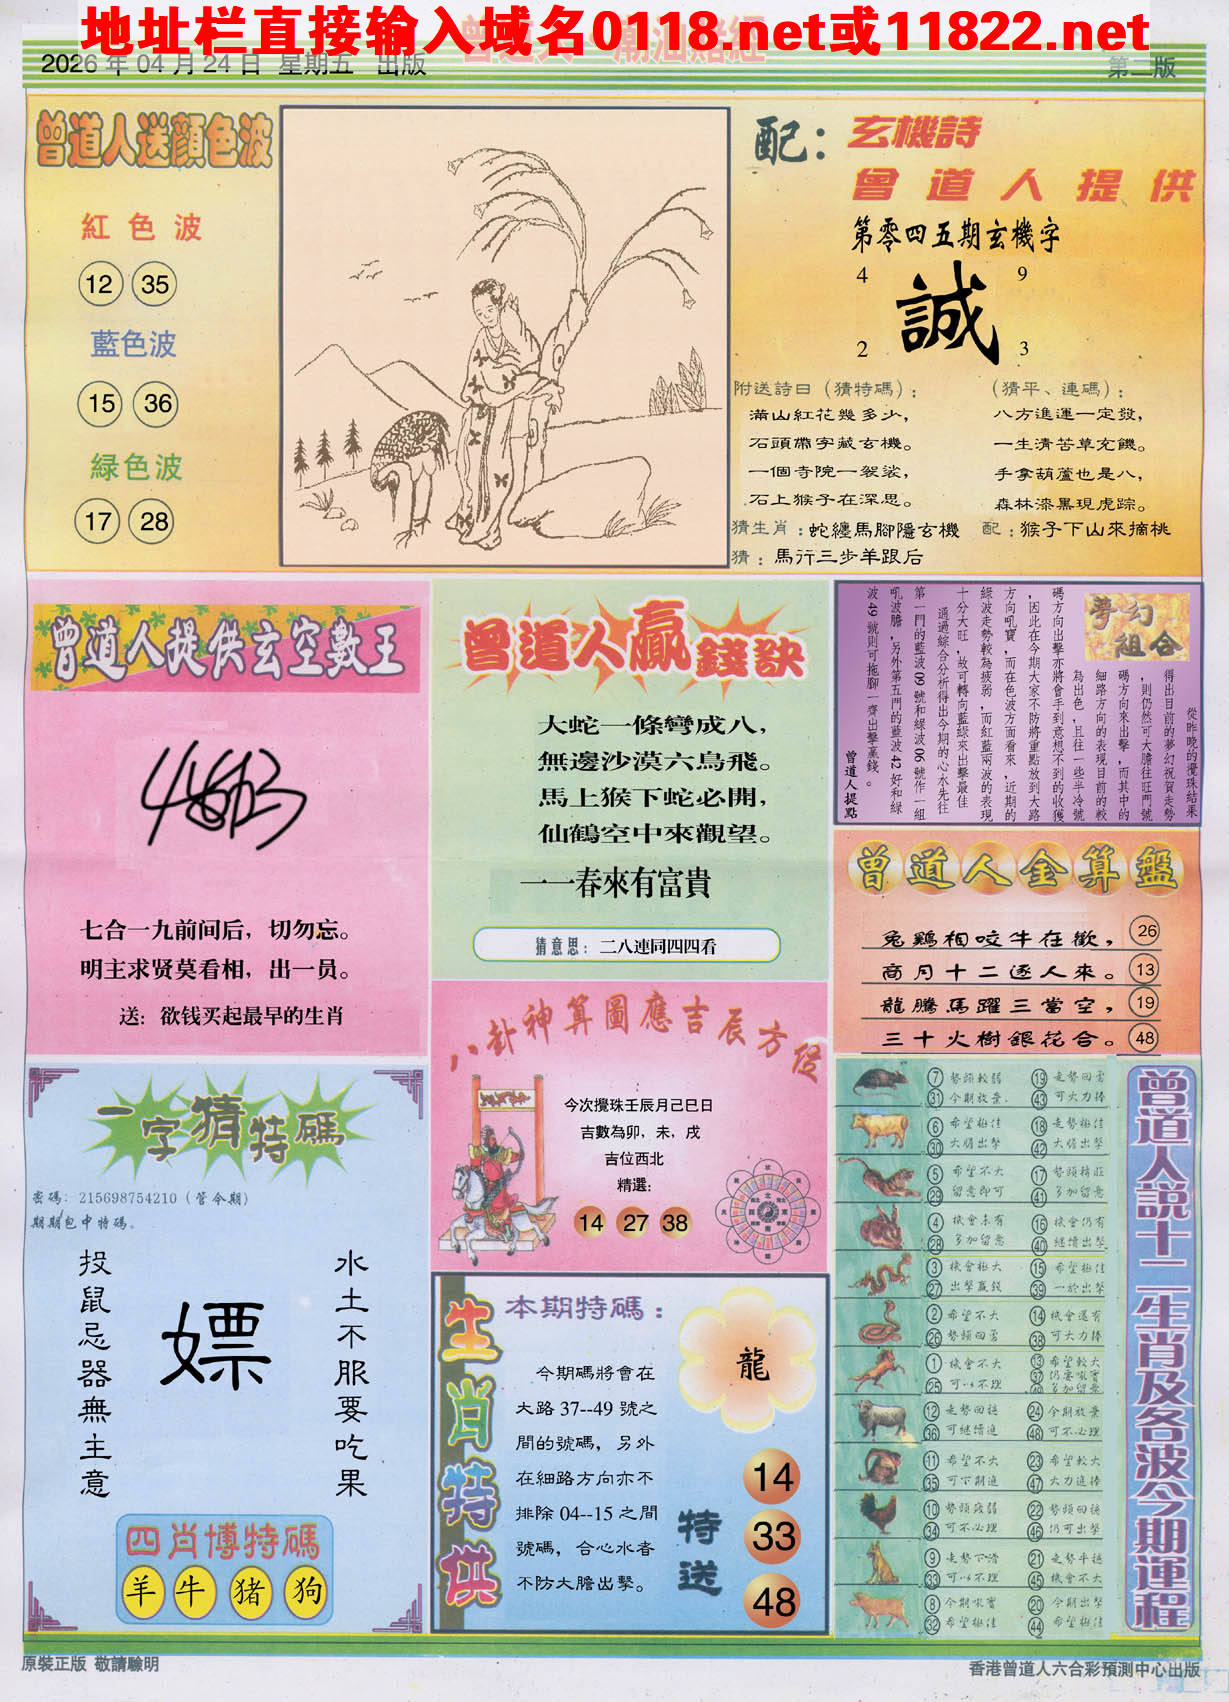 地址栏直接输入域名0118.net或11822.net
2026 年 04 月 24 日 星期五 出版
第二版
曾道人送顏色波
紅色波
12 35
藍色波
15 36
緑色波
17 28
配：玄機詩
曾道人提供
第零四五期玄機字
4 9
誠
2 3
附送詩曰（猜特碼）：
滿山紅花幾多少，
石頭帶字藏玄機。
一個寺院一袈裟，
石上猴子在深思。
（猜平、連碼）：
八方進運一定發，
一生清苦草充饑。
手拿葫蘆也是八，
森林漆黑現虎踪。
猜生肖：蛇纏馬腳隱玄機 配：猴子下山來摘桃
猜：馬行三步羊跟后
曾道人提供玄空數王
七合一九前间后，切勿忘。
明主求贤莫看相，出一员。
送：欲钱买起最早的生肖
曾道人贏錢訣
大蛇一條彎成八，
無邊沙漠六鳥飛。
馬上猴下蛇必開，
仙鶴空中來觀望。
一一春來有富貴
猜意思：二八連同四四看
夢幻組合
從昨晚的攪珠結果
得出目前的夢幻祝賀走勢
，則仍然可大膽往旺門號
碼方向來出擊，而其中的
細路方向的表現目前的較
為出色，且往一些半冷號
碼方向出擊亦將會手到意想不到的收獲
，因此在今期大家不防將重點放到大路
方向吼寶，而在色波方面看來，近期的
綠波走勢較為疲弱，而紅藍兩波的表現
十分大旺，故可轉向藍綠來出擊最佳
通過綜合分析得出今期的心水先往
第一門的藍波 09 號和綠波 06 號作一組
吼波膽，另外第五門的藍波 42 好和綠
波 49 號則可拖腳一齊出擊贏錢。
曾道人提點
曾道人金算盤
兔鷄相咬牛在歡， 26
商月十二逐人來。 13
龍騰馬躍三當空， 19
三十火樹銀花合。 48
一字猜特碼
密碼：215698754210（管令期）
期期包中特碼。
投鼠忌器無主意
嫖
水土不服要吃果
四肖博特碼
羊 牛 猪 狗
八卦神算圖應吉辰方位
今次攪珠壬辰月己巳日
吉數為卯，未，戌
吉位西北
精選：
14 27 38
生肖特供
本期特碼：
龍
今期碼將會在
大路 37--49 號之
間的號碼，另外
在細路方向亦不
排除 04--15 之間
號碼，合心水者
不防大膽出擊。
特送
14
33
48
曾道人説十二生肖及各波今期運程
7 勢頭較弱 19 走勢回雷
31 今期放棄 43 可大力捧
6 希望極佳 18 走勢極佳
30 大膽出擊 42 大膽出擊
5 希望不大 17 勢頭精旺
29 留意即可 41 多加留意
4 機會未有 16 機會仍有
28 多加留意 40 繼續出擊
3 機會極大 15 希望極佳
27 出擊贏錢 39 一於出擊
2 希望不大 14 機會還有
26 勢頭回勇 38 可大力捧
1 機會不大 13 希望較大
25 可以不理 37 仍要吼實
49 多加留意
12 走勢回穩 24 今期放棄
36 可繼續追 48 可不必理
11 希望不大 23 希望較大
35 可下期追 47 大力追捧
10 勢頭疲弱 22 勢頭回穩
34 可不必理 46 仍可出擊
9 走勢下滑 21 走勢平穩
33 可以不理 45 機會不大
8 今期吼實 20 今期出擊
32 希望極佳 44 希望極佳
原裝正版 敬請驗明
香港曾道人六合彩預測中心出版